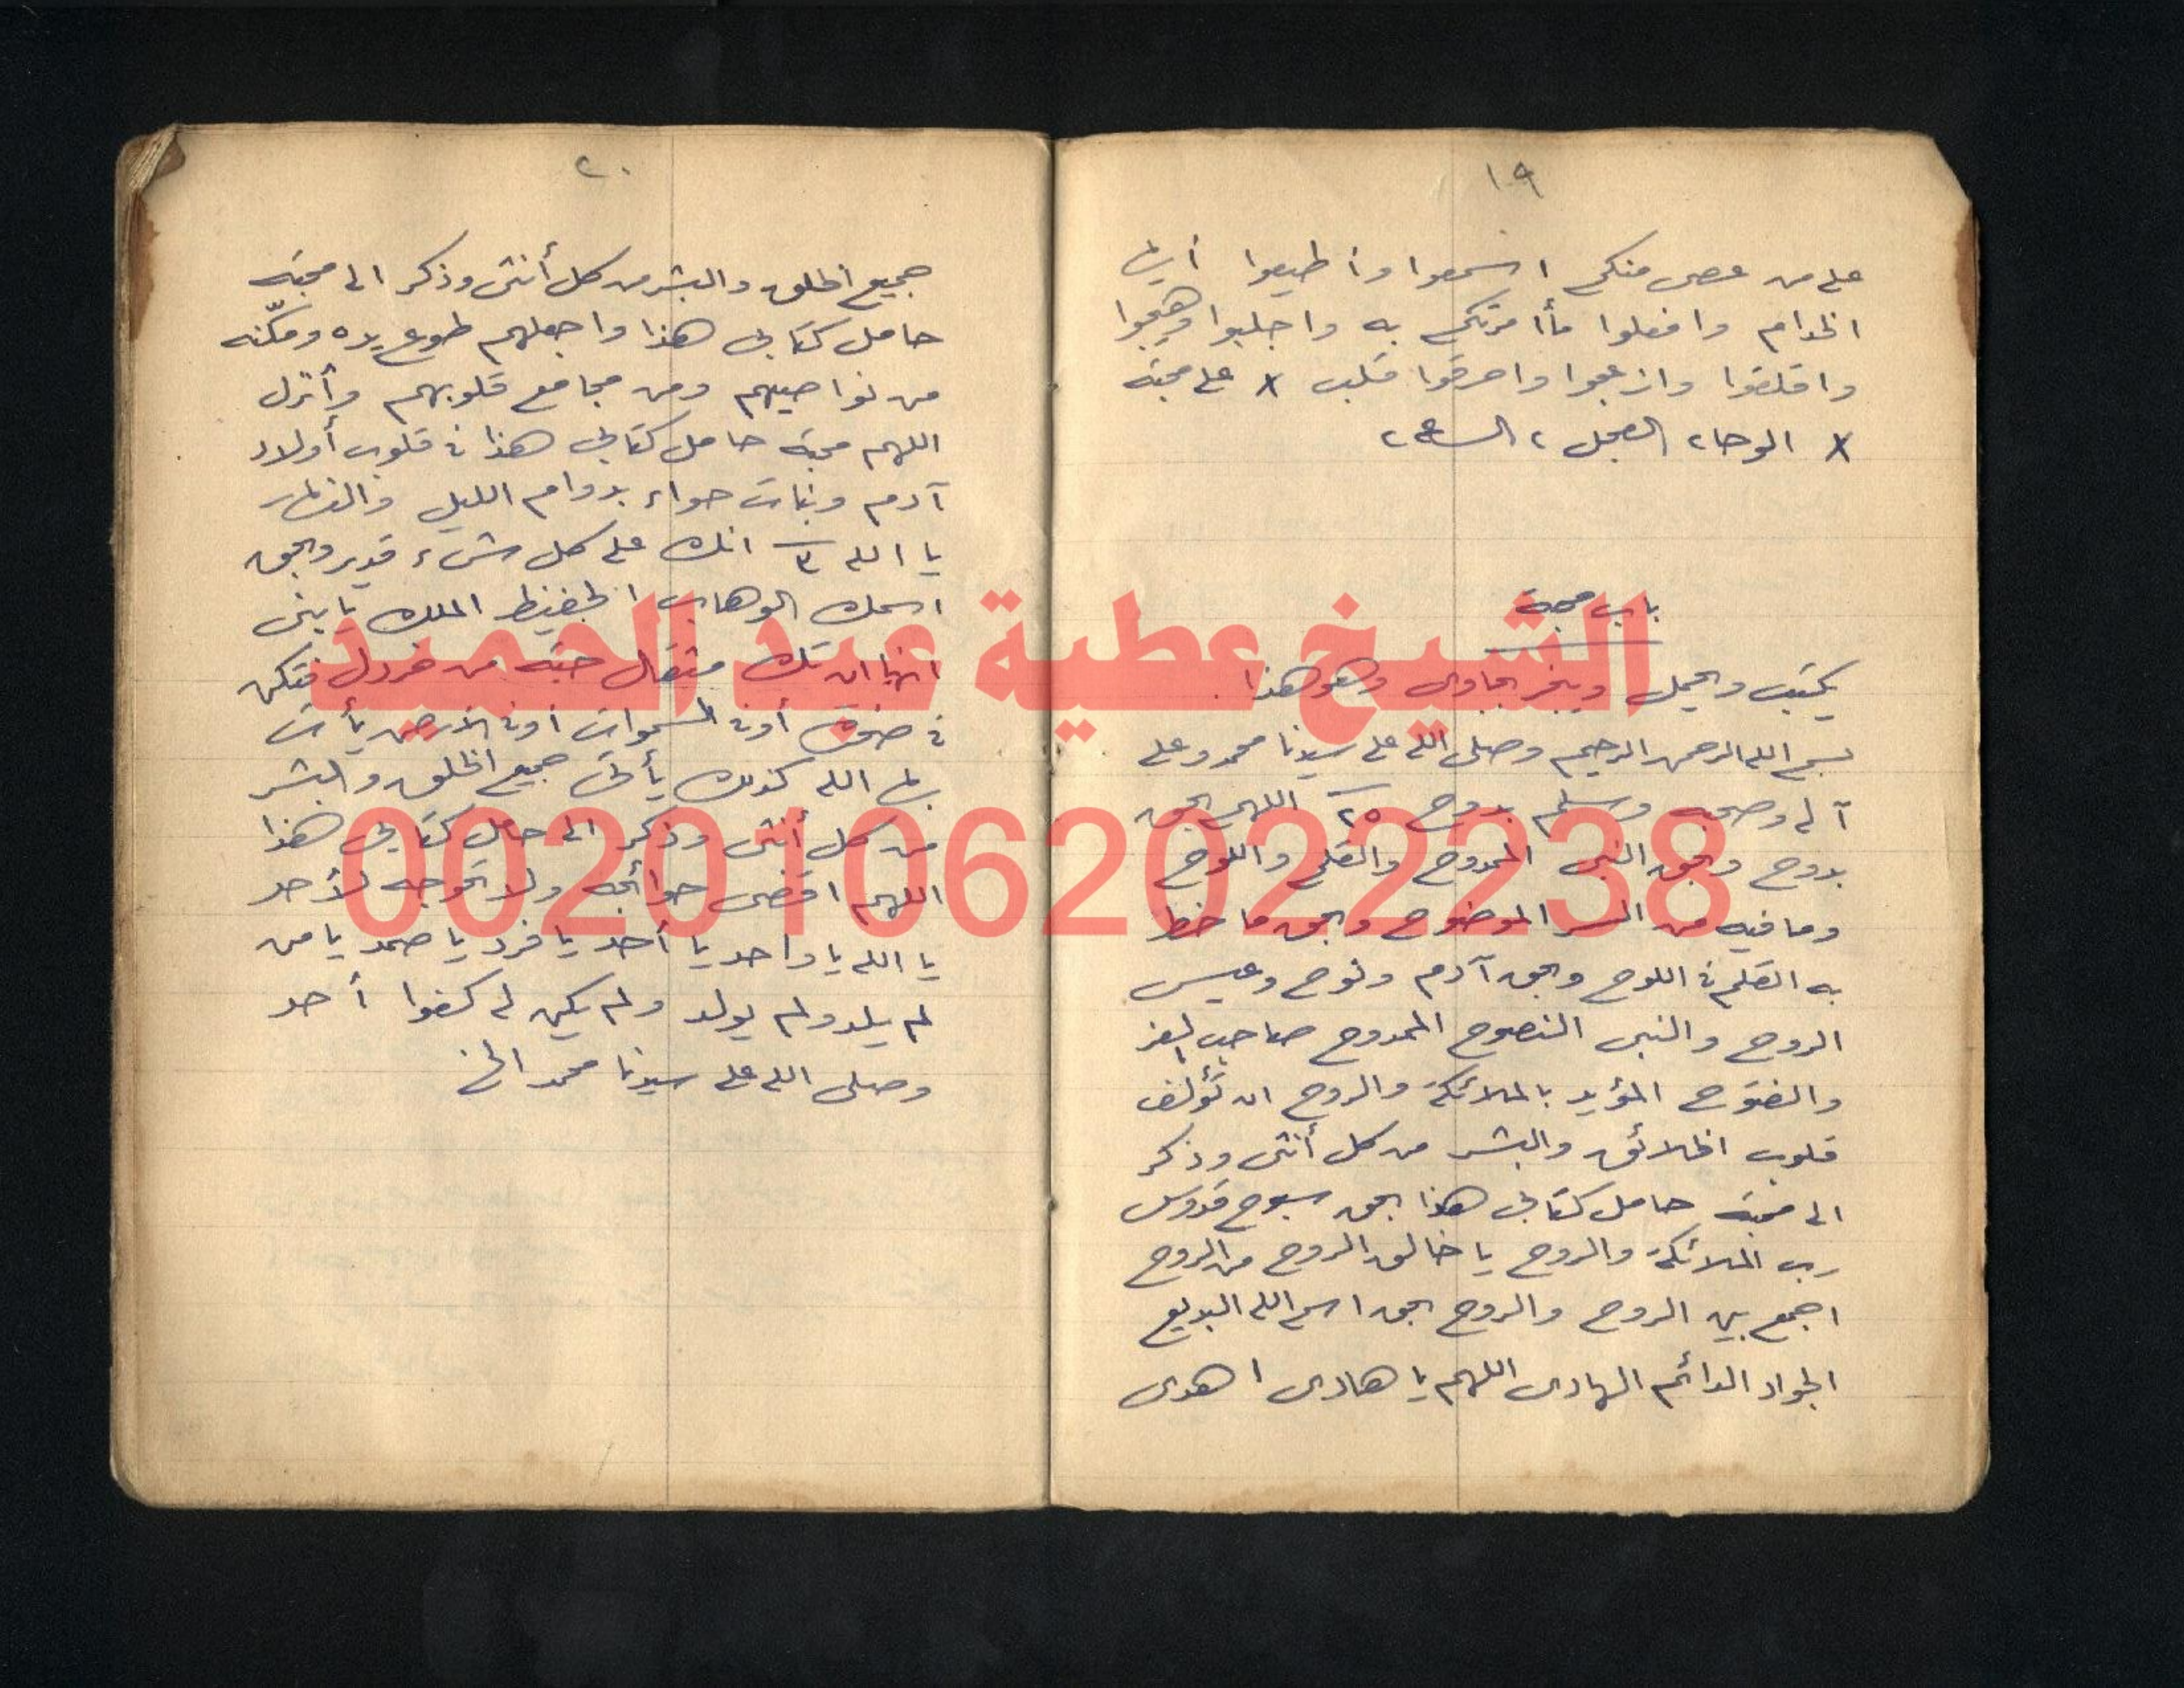 ١٩
على من عصى منكم اسمعوا وأطيعوا أيها
الخدام وافعلوا مأأمرتكم به واجلبوا وهيجوا
واقلقوا وازعجوا واحرقوا قلب x على محبة
x الوحا٢ العجل ٢ الساعة ٢
باب محبة
يكتب ويحمل ويبخر بجاوى وهو هذا
بسم الله الرحمن الرحيم وصلى الله على سيدنا محمد وعلى
آله وصحبه وسلم بدوح ٢٥ اللهم بحق
بدوح وبحق النبى الممدوح والقلم واللوح
وما فيه من السر الموضوح وبحق ما خط
به القلم فى اللوح وبحق آدم ونوح وعيسى
الروح والنبى النصوح الممدوح صاحب العز
والفتوح المؤيد بالملائكة والروح ان تؤلف
قلوب الخلائق والبشر من كل أنثى وذكر
الى محبة حامل كتابى هذا بحق سبوح قدوس
رب الملائكة والروح يا خالق الروح من الروح
اجمع بين الروح والروح بحق اسم الله البديع
الجواد الدائم الهادى اللهم يا هادى اهدى
٢٠
جميع الخلق والبشر من كل أنثى وذكر الى محبة
حامل كتابى هذا واجعلهم طوع يده ومكّنه
من نواصيهم ومن مجامع قلوبهم وأنزل
اللهم محبة حامل كتابى هذا فى قلوب أولاد
آدم وبنات حواء بدوام الليل والنهار
يا الله ٣ انك على كل شىء قدير وبحق
اسمك الوهاب الحفيظ الملك يا بنى
انها ان تك مثقال حبة من خردل فتكن
فى صخرة أو فى السموات أو فى الأرض يأت
بها الله كذلك يأتى جميع الخلق والبشر
من كل أنثى وذكر الى حامل كتابى هذا
اللهم اقضى حوائجه ولا تحوجه لأحد
يا الله يا واحد يا أحد يا فرد يا صمد يا من
لم يلد ولم يولد ولم يكن له كفوا أحد
وصلى الله على سيدنا محمد الخ
الشيخ عطية عبد الحميد
00201062022238